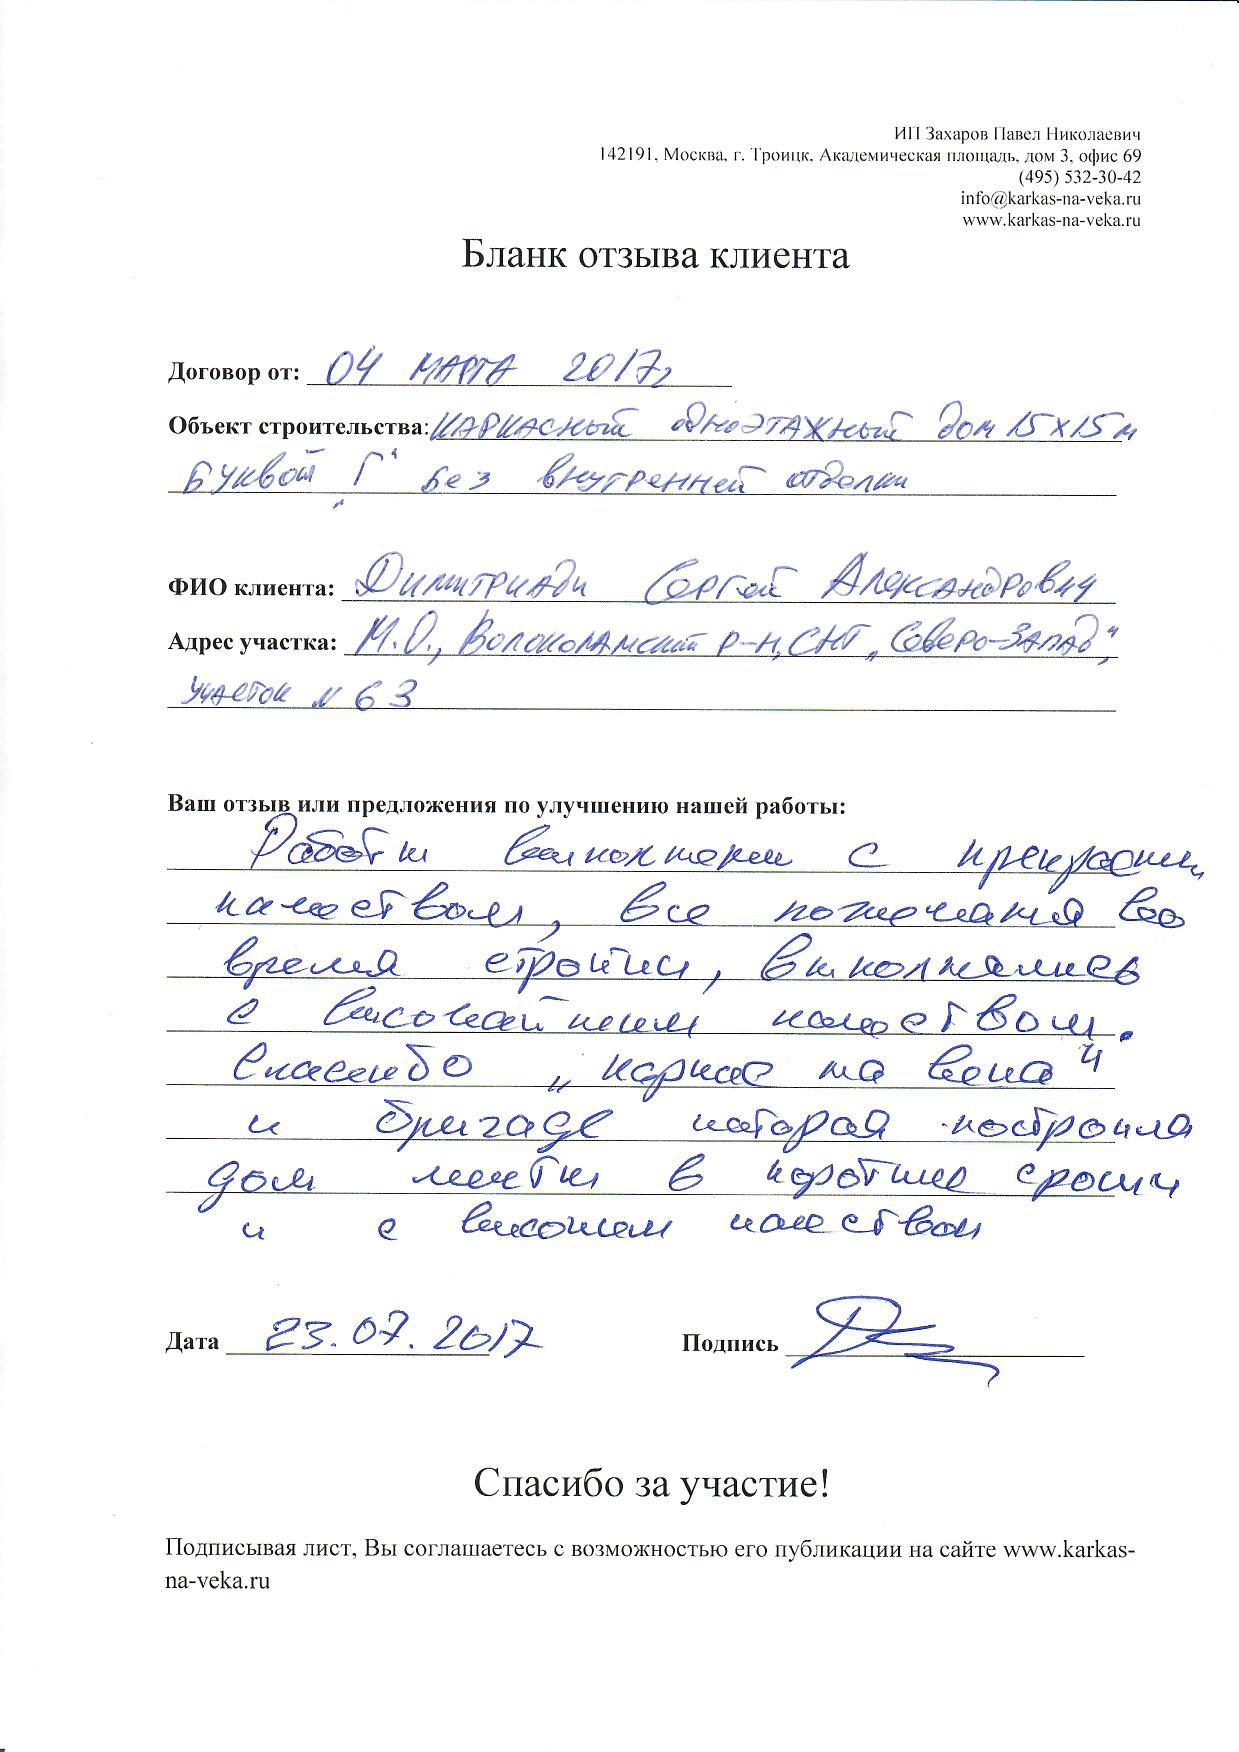 ИП Захаров Павел Николаевич
142191, Москва, г. Троицк, Академическая площадь, дом 3, офис 69
(495) 532-30-42
info@karkas-na-veka.ru
www.karkas-na-veka.ru
Бланк отзыва клиента
Договор от: 04 МАРТА 2017г
Объект строительства: КАРКАСНЫЙ одноэтажный дом 15х15м
Буквой „Г“ без внутренней отделки
ФИО клиента: Димитриади Сергей Александрович
Адрес участка: М.О., Волоколамский р-н, СНТ „Северо-Запад“,
участок N 63
Ваш отзыв или предложения по улучшению нашей работы:
Работы выполнены с прекрасным
качеством, все пожелания во
время стройки, выполнялись
с высочайшим качеством.
Спасибо „каркас на века“
и бригаде которая построила
дом мечты в короткие сроки
и с высоким качеством
Дата 23.07.2017 Подпись
Спасибо за участие!
Подписывая лист, Вы соглашаетесь с возможностью его публикации на сайте www.karkas-
na-veka.ru